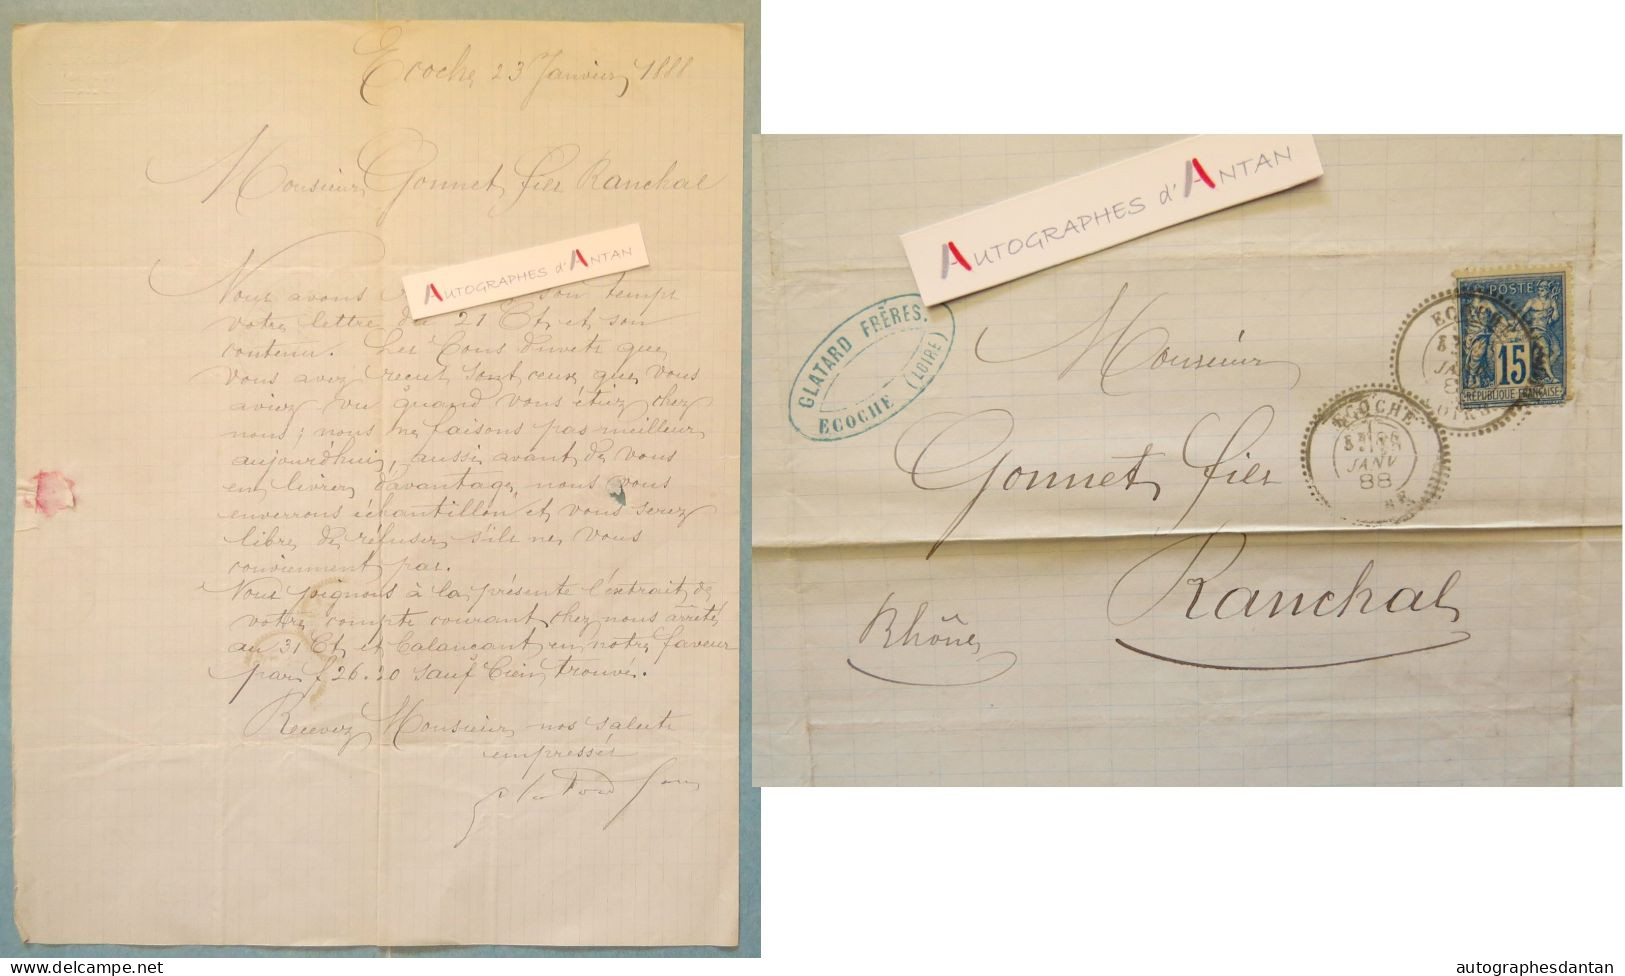 Ecoche 23 Janvier 1888
Monsieur Gonnet fils Ranchal
AUTOGRAPHES d'ANTAN
Nous avons son temps
votre lettre du 21 Ct et son
contenu. Les Cons duvets que
vous avez reçus sont ceux que vous
aviez vu quand vous étiez chez
nous; nous ne faisons pas meilleur
aujourd'hui, aussi avant de vous
en livrer davantage, nous vous
enverrons échantillon et vous serez
libre de réfuser s'ils ne vous
conviennent pas.
Nous joignons à la présente l'extrait de
votre compte courant chez nous arrêté
au 31 Ct et balançant en notre faveur
par f 26.20 sauf bien trouvé.
Recevez Monsieur nos saluts
empressés
AUTOGRAPHES d'ANTAN
GLATARD FRÈRES.
ECOCHE (LOIRE)
POSTE
15
RÉPUBLIQUE FRANÇAISE
ECOCHE
JANV
88
Monsieur
Gonnet fils
Ranchal
Rhône
www.delcampe.net
autographesdantan